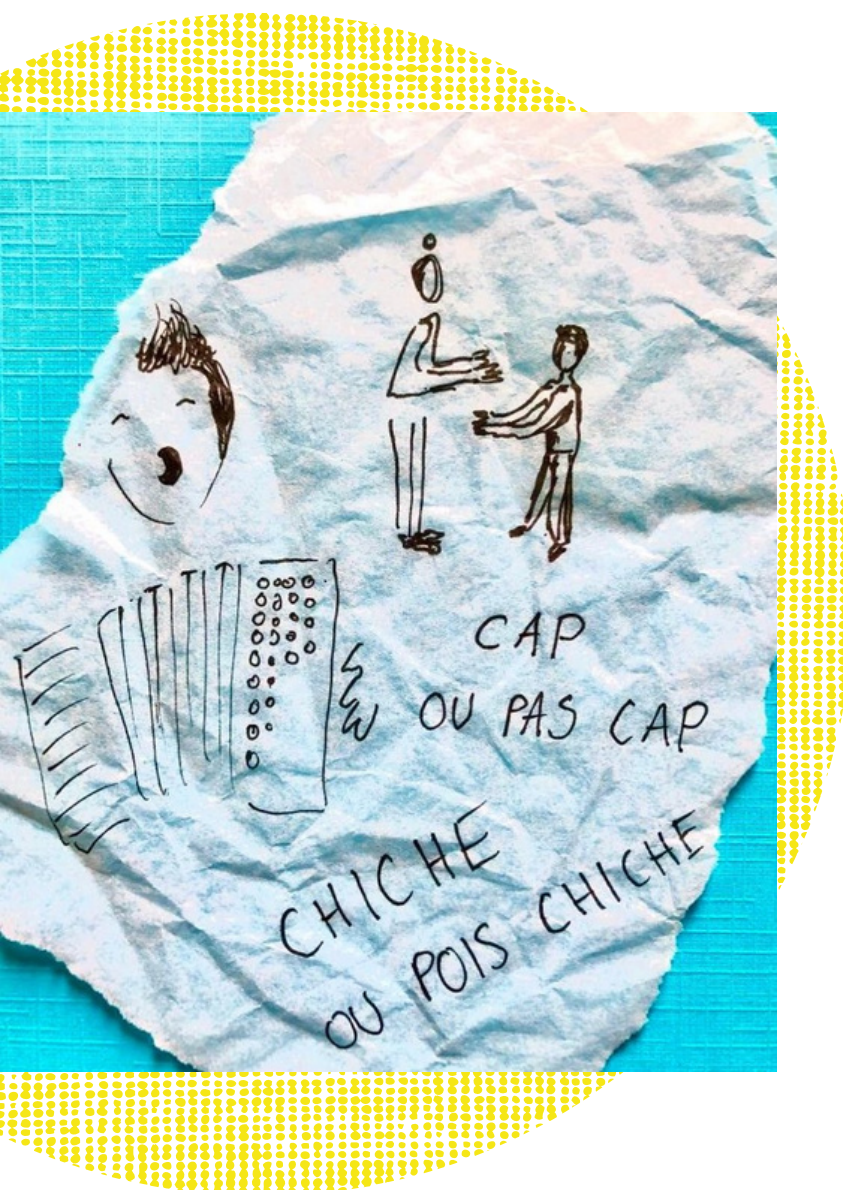 CAP
OU PAS CAP
CHICHE
OU POIS CHICHE